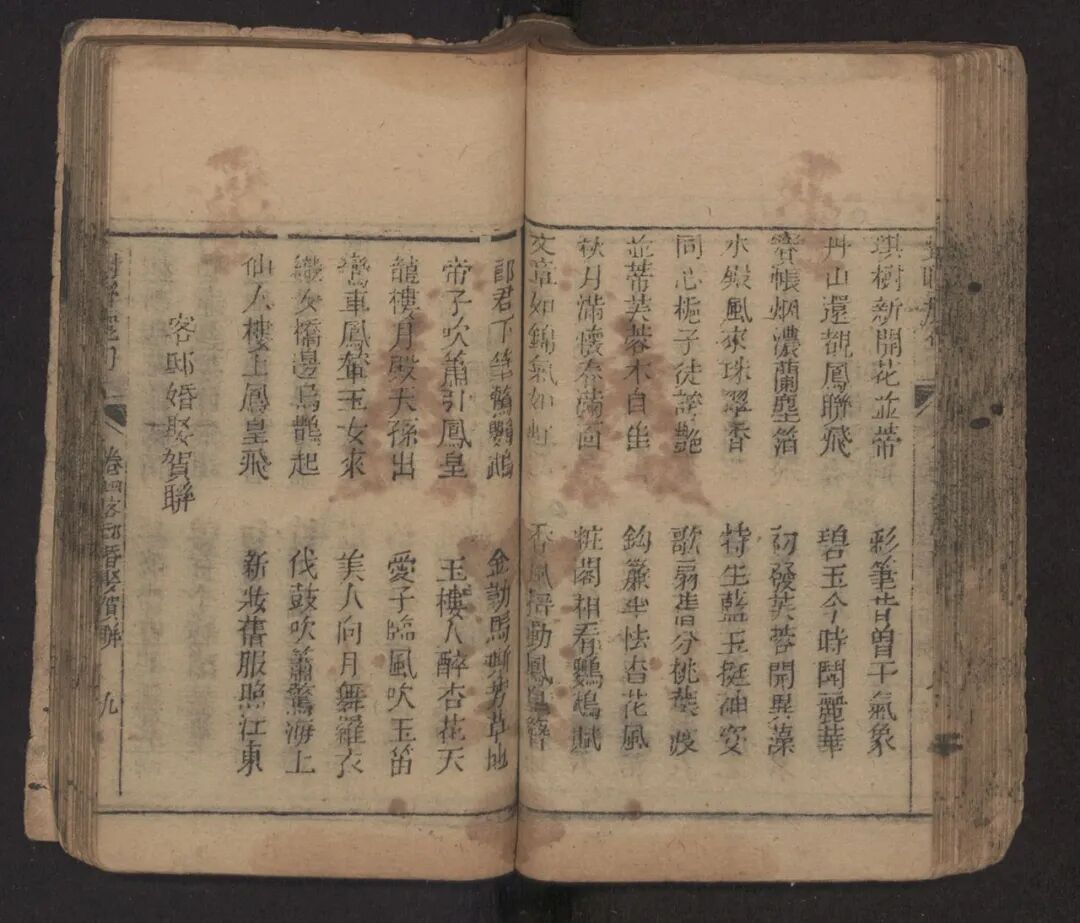 琪樹新開花並蒂　彩筆昔曾干氣象
丹山還覩鳳聯飛　碧玉今時鬪麗華
寶帳烟濃蘭麈箔　初發芙蓉開異藻
水殿風來珠翠香　特生藍玉挺神姿
同心梔子徒誇艷　歌扇皆分桃葉渡
並蒂芙蓉本自生　鈎簾半怯杏花風
秋月滿懷春滿面　粧閣相看鸚鵡賦
文章如錦氣如虹　香風搖動鳳凰簪
郎君下筆驚鸚鵡　金勒馬嘶芳草地
帝子吹簫引鳳皇　玉樓人醉杏花天
龍樓月殿天孫出　愛子臨風吹玉笛
鸞車鳳輦玉女來　美人向月舞羅衣
織女橋邊烏鵲起　伐鼓吹簫驚海上
仙人樓上鳳皇飛　新妝舊服照江東
客邸婚娶賀聯
卷四客邸婚娶賀聯　九